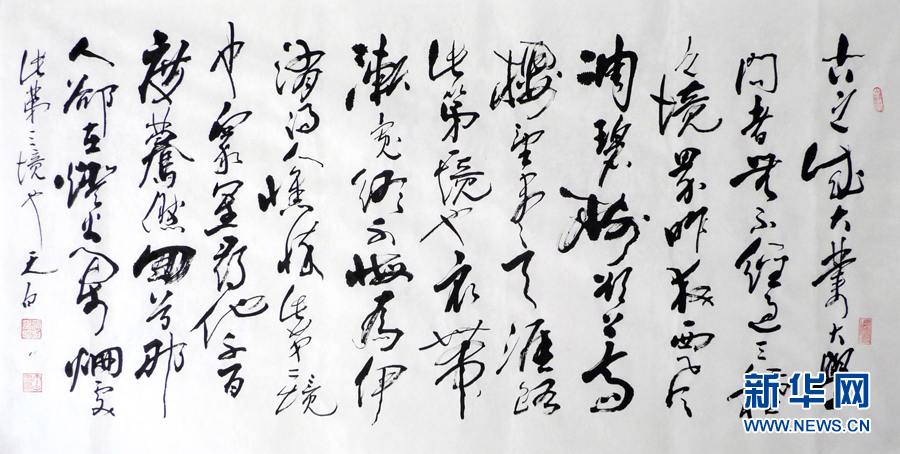 古之成大業大學
問者無不經過三種
之境界昨夜西風
凋碧樹獨上高
樓望盡天涯路
此第一境也衣帶
漸寬終不悔為伊
消得人憔悴此第二境
也眾里尋他千百
度驀然回首那
人卻在燈火闌珊處
此第三境也 天白
新华网
WWW.NEWS.CN